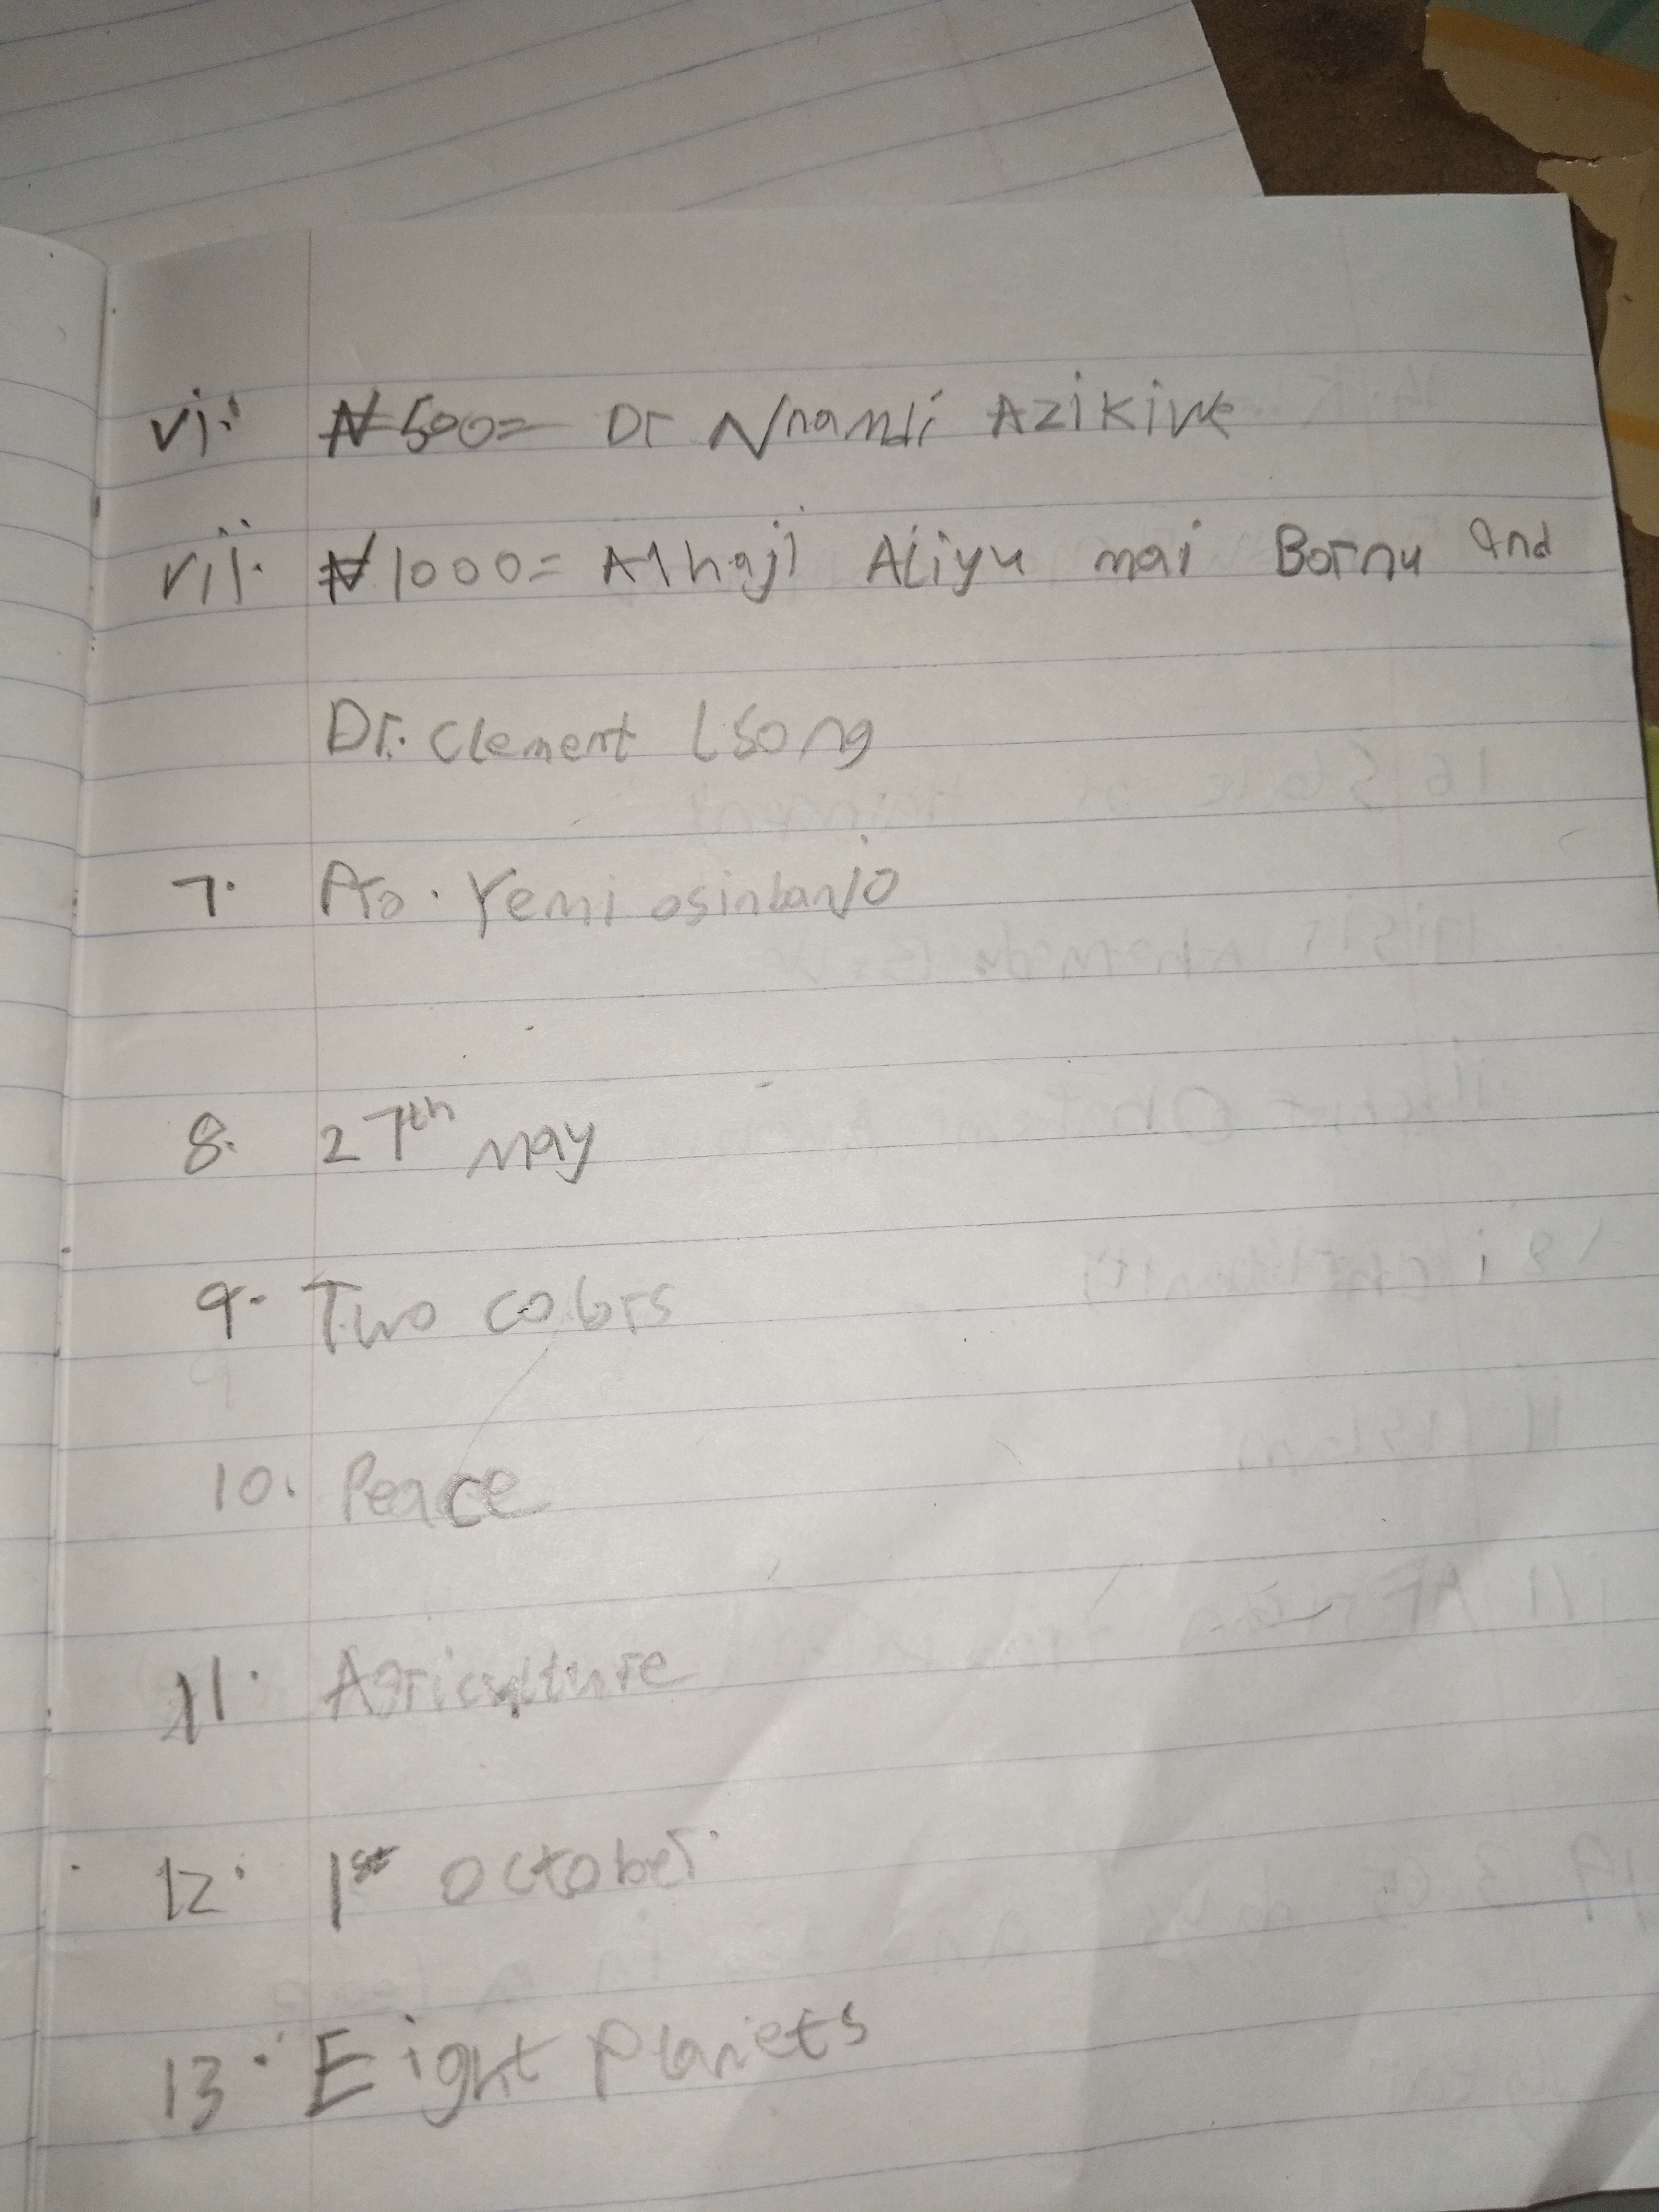 vi. ₦500= Dr Nnamdi AZIKIWe
vii. ₦1000= Alhaji Aliyu mai Bornu and
Dr. Clement Isong
7. Pro. Yemi osinbanjo
8. 27th may
9. Two colors
10. Peace
11. Agriculture
12. 1st october
13. Eight planets